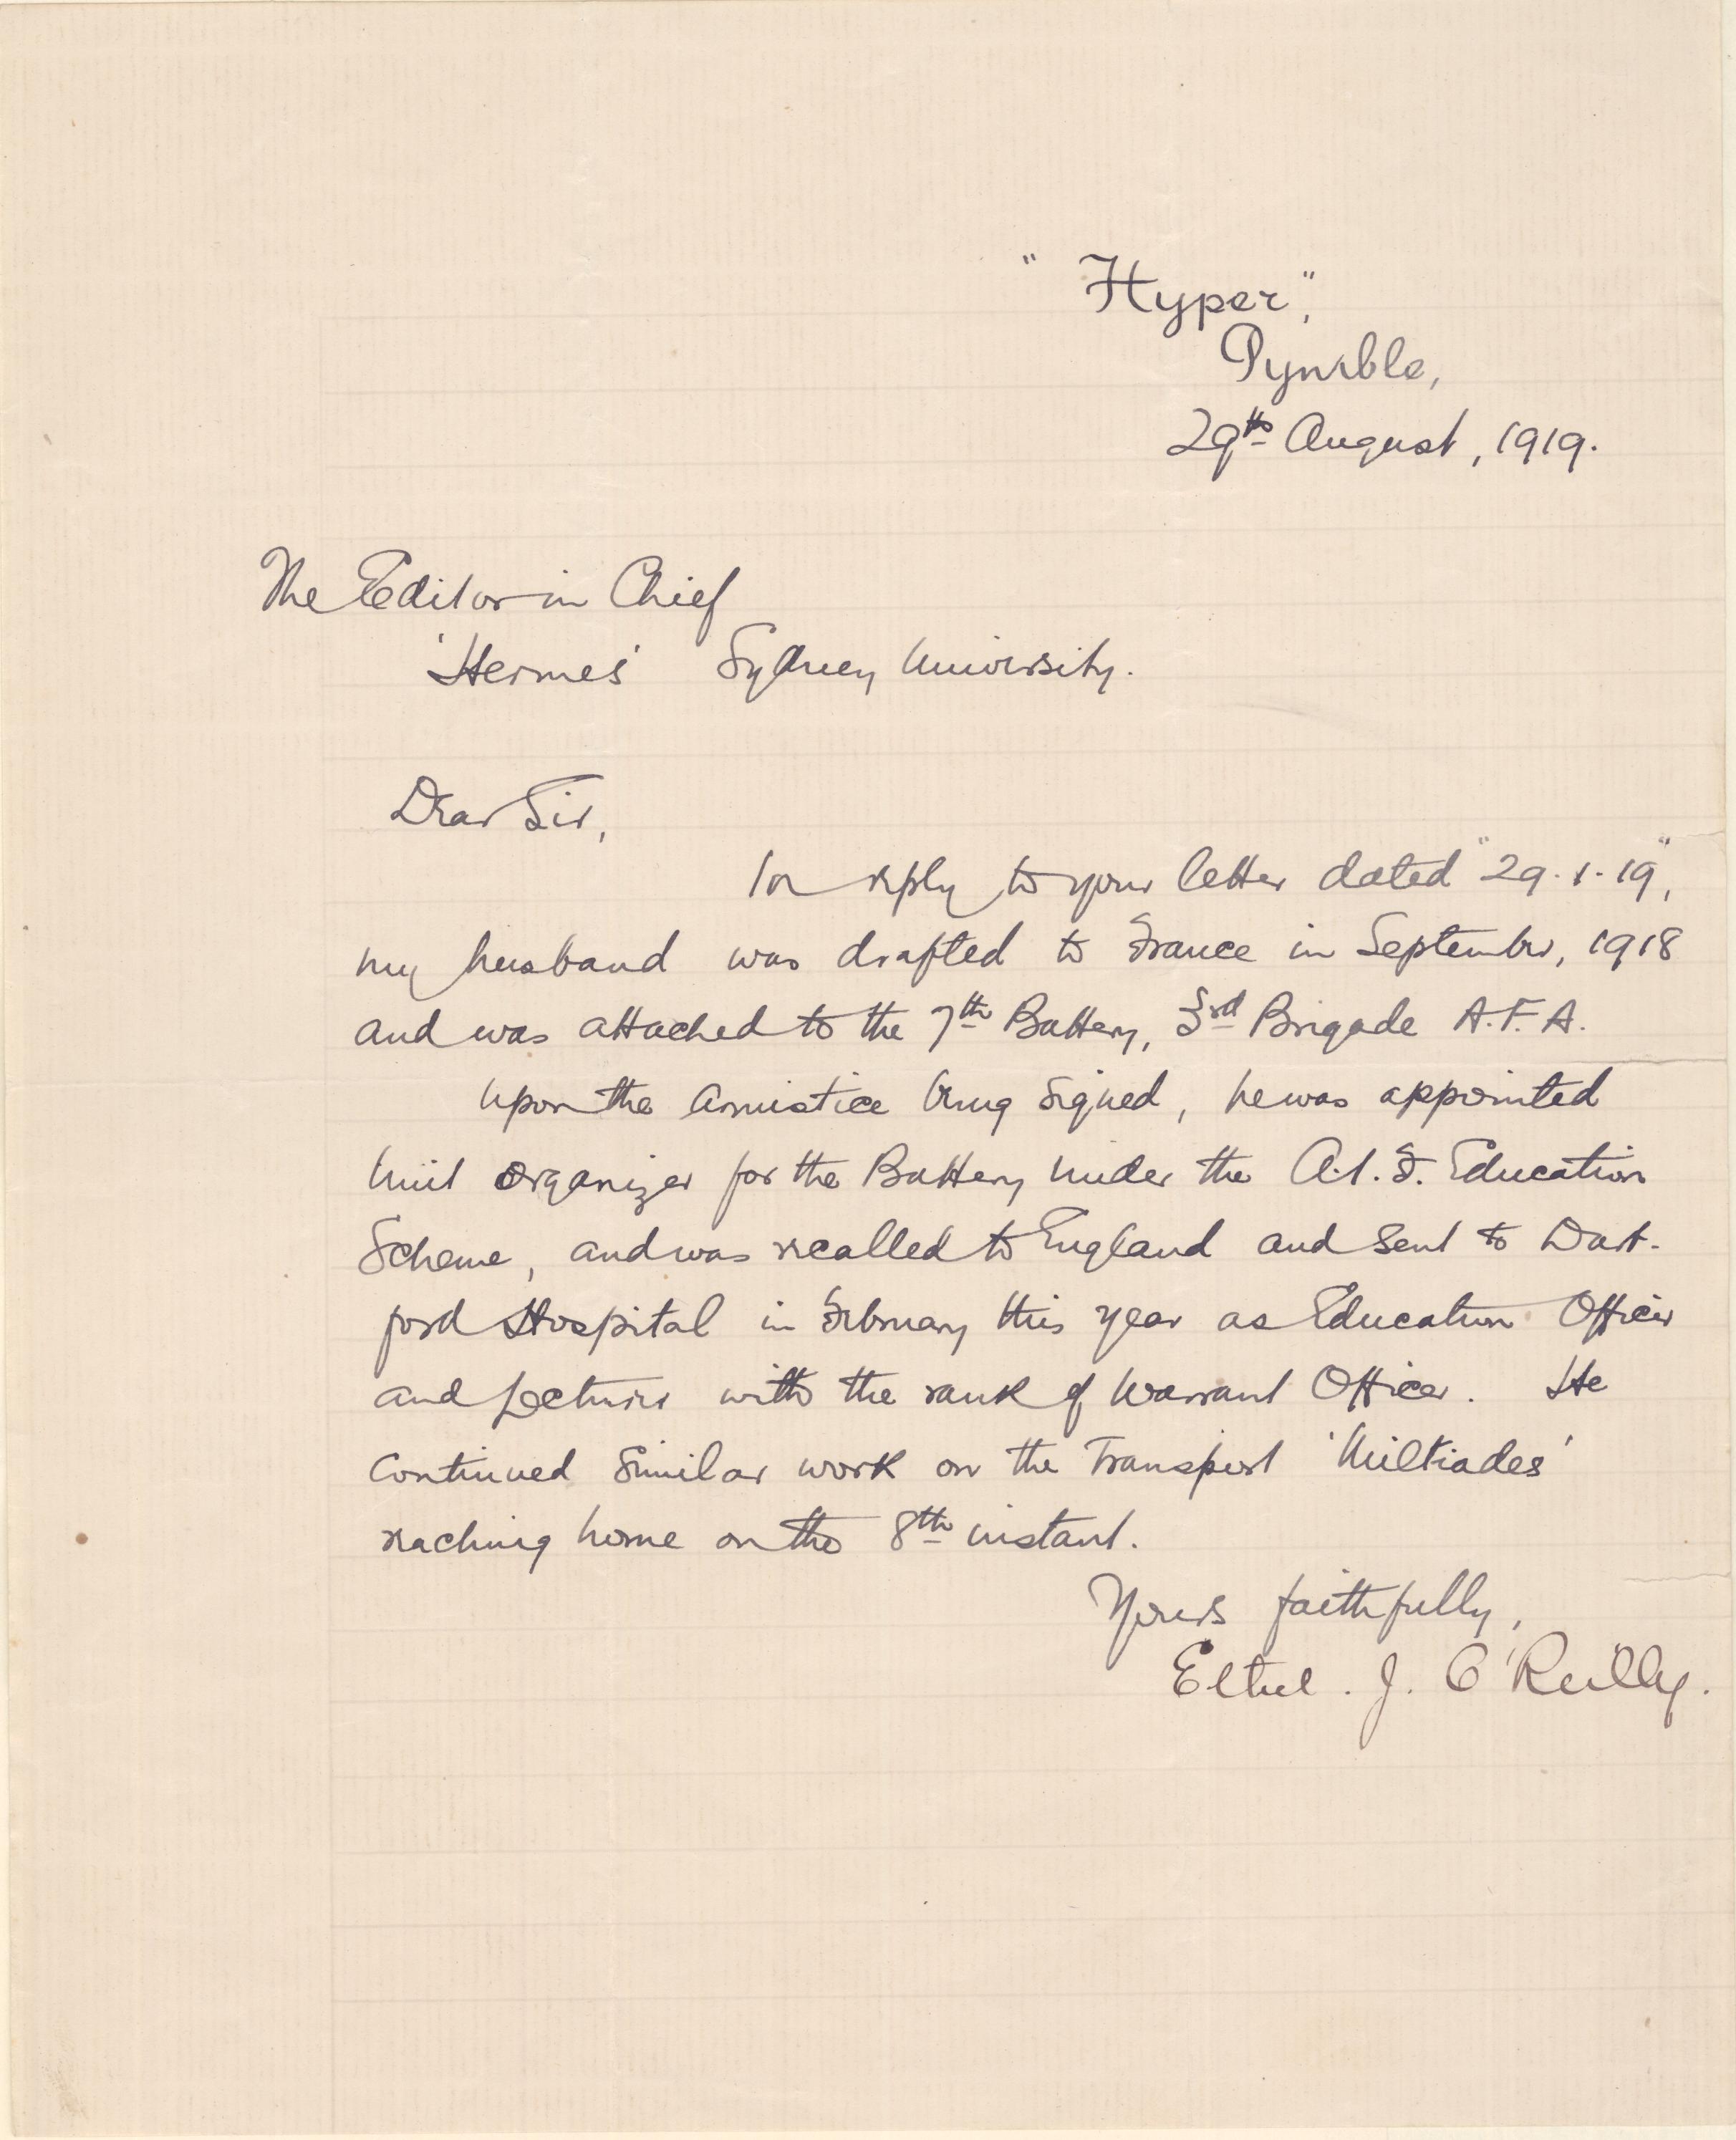 "Hyper",
Pymble,
29th August, 1919.
The Editor in Chief
'Hermes' Sydney University.
Dear Sir,
In reply to your letter dated "29.1.19",
my husband was drafted to France in September, 1918
and was attached to the 7th Battery, 3rd Brigade A.F.A.
Upon the Armistice being signed, he was appointed
Unit Organizer for the Battery under the A.I.F. Education
Scheme, and was recalled to England and sent to Dart-
ford Hospital in February this year as Education Officer
and Lecturer with the rank of Warrant Officer. He
continued similar work on the Transport 'Miltiades'
reaching home on the 8th instant.
Yours faithfully,
Ethel. J. O'Reilly.